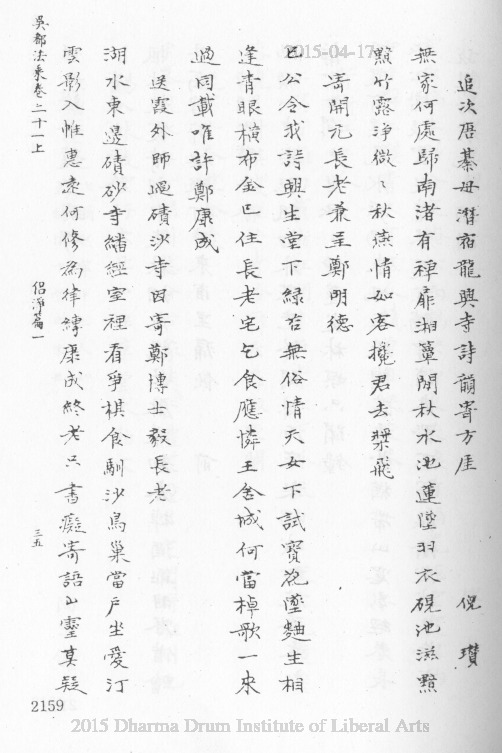 追次唐綦毋潛宿龍興寺詩韻寄方厓 倪瓚
無家何處歸南渚有禪扉湘簟閒秋水池蓮墜羽衣硯池滋黯
點竹露淨微〻秋燕情如客攬君去槳飛
寄開元長老兼呈鄭明德
巳公令我詩興生堂下綠苔無俗情天女下試寶花墮麯生相
逢青眼橫布金巳住長老宅乞食應憐王舍城何當棹歌一來
過同載唯許鄭康成
送霞外師過磧沙寺因寄鄭博士毅長老
湖水東邊磧砂寺繙經室裡看爭棋食馴沙鳥巢當戶坐愛汀
雲影入帷惠遠何修為律縛康成終老只書癡寄語山靈莫疑
吳都法乘卷二十一上 侶淨篇一 三五
2159
2015-04-17
2015 Dharma Drum Institute of Liberal Arts